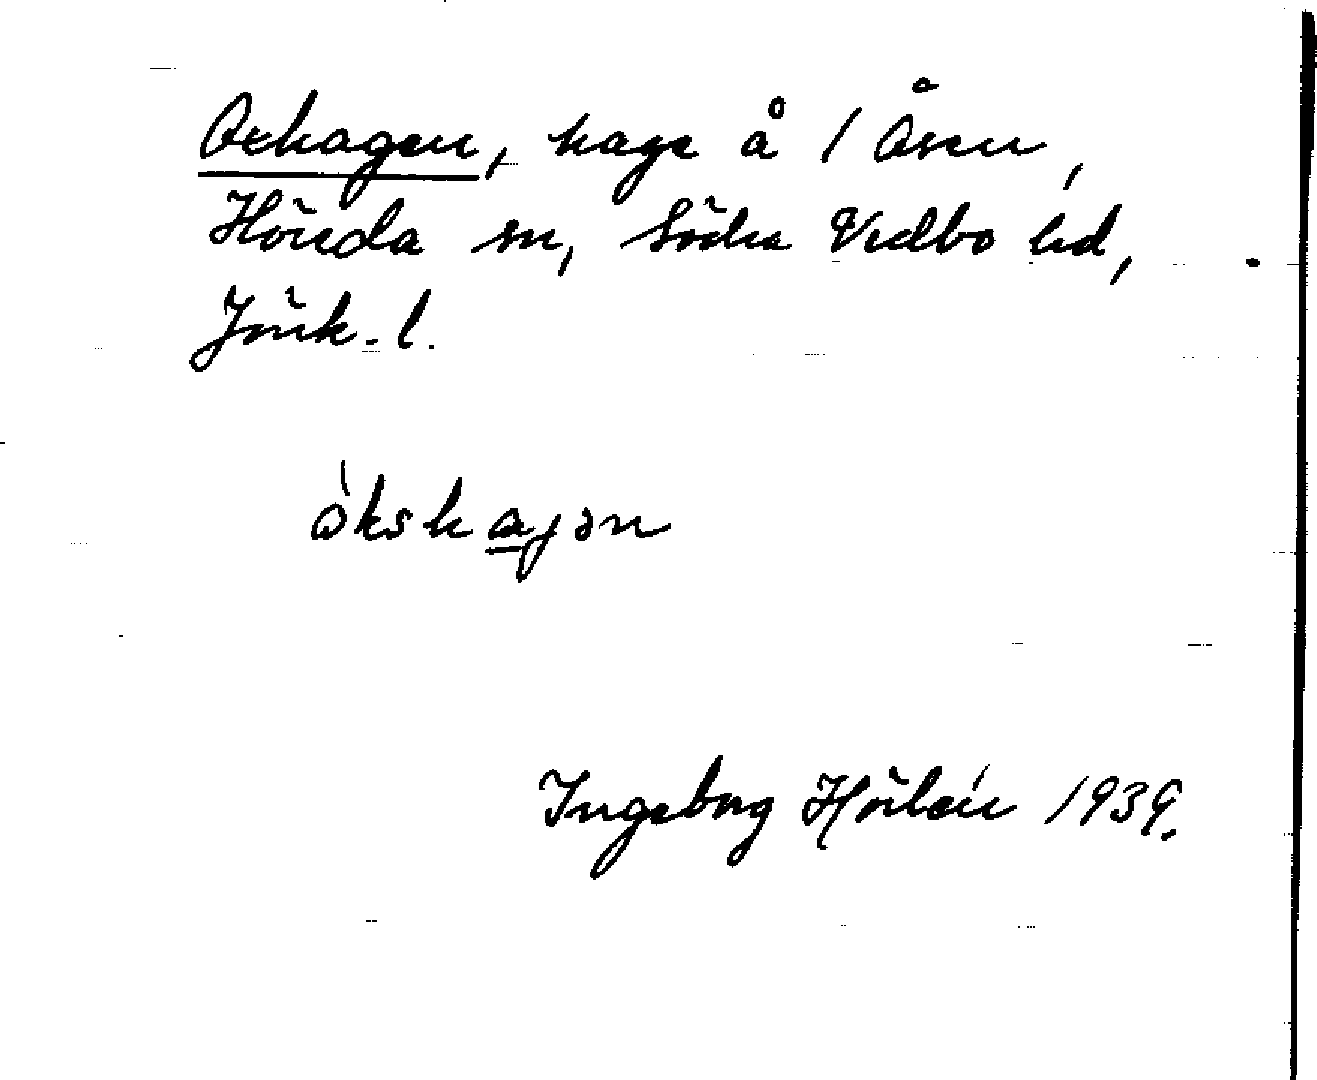 Oxhagen, hage å 1 Åsen,
Höreda sn, Södra Vedbo hd,
Jönk. l.
òkshajən
Ingeborg Hörlén 1939.